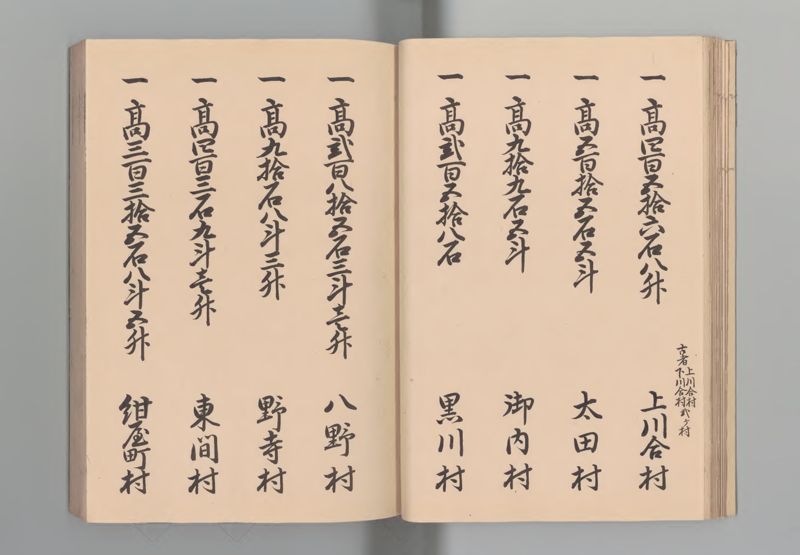 古者上川合村
下川合村弐ヶ村
一 高四百五拾六石八升 上川合村
一 高五百拾五石五斗 太田村
一 高九拾九石五斗 御内村
一 高弐百五拾八石 黒川村
一 高弐百八拾五石三斗壱升 八野村
一 高九拾石八斗三升 野寺村
一 高四百三石九斗壱升 東間村
一 高三百三拾五石八斗五升 紺屋町村